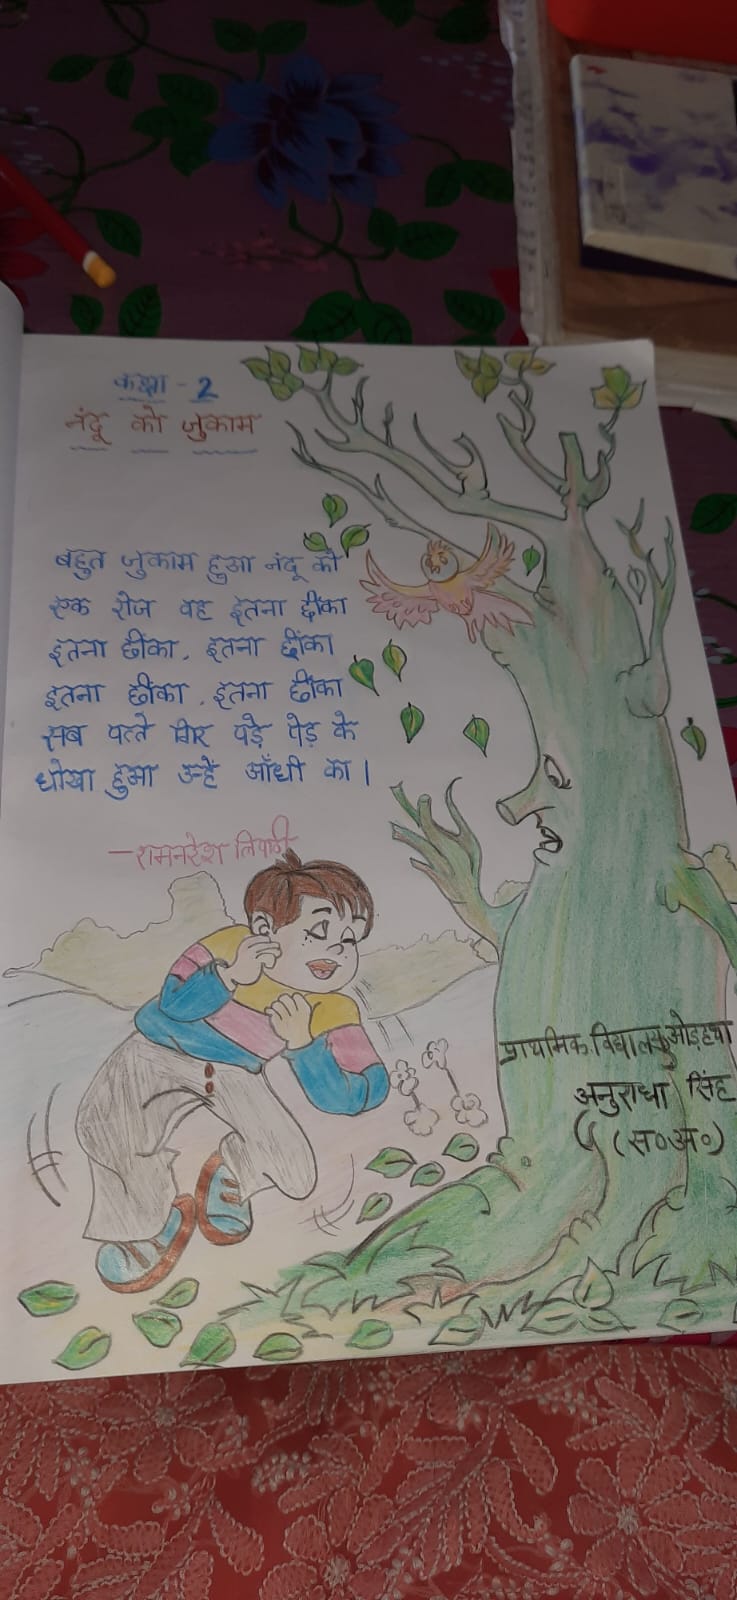 कक्षा - 2
नंदू को जुकाम
बहुत जुकाम हुआ नंदू को
एक रोज वह इतना छींका
इतना छींका, इतना छींका
इतना छींका, इतना छींका
सब पत्ते गिर पड़े पेड़ के
धोखा हुआ उन्हें आँधी का।
- रामनरेश त्रिपाठी
प्राथमिक विद्यालय ओड़हथा
अनुराधा सिंह
(स०अ०)